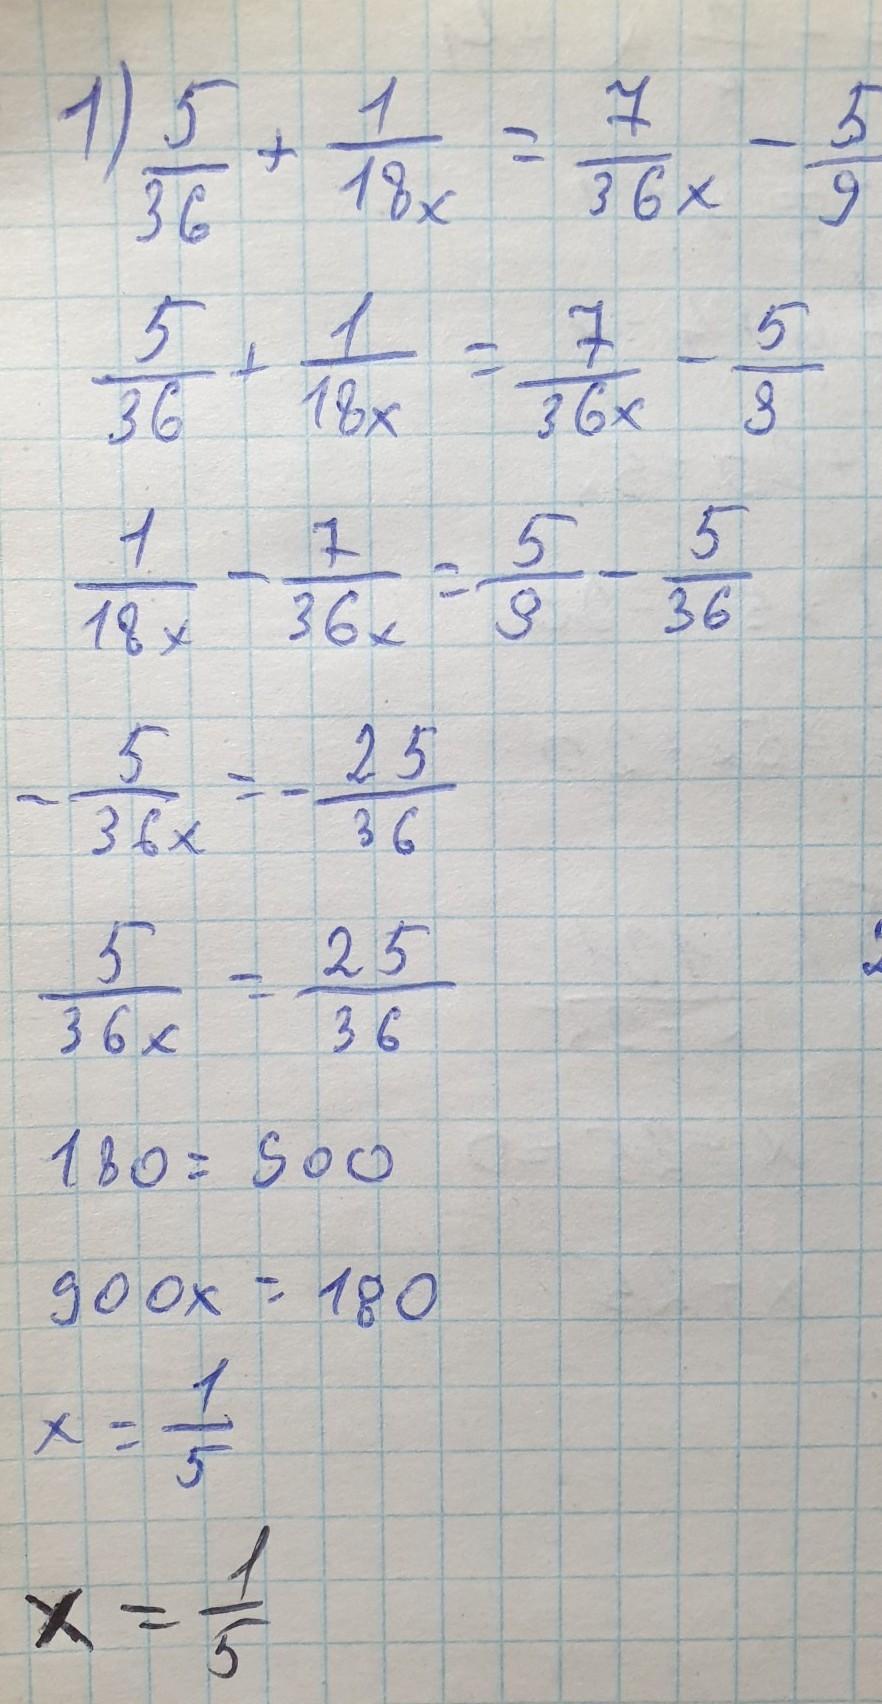 1) 5/36 + 1/18x = 7/36x - 5/9
5/36 + 1/18x = 7/36x - 5/9
1/18x - 7/36x = 5/9 - 5/36
- 5/36x = - 25/36
5/36x = 25/36
180 = 900
900x = 180
x = 1/5
x = 1/5